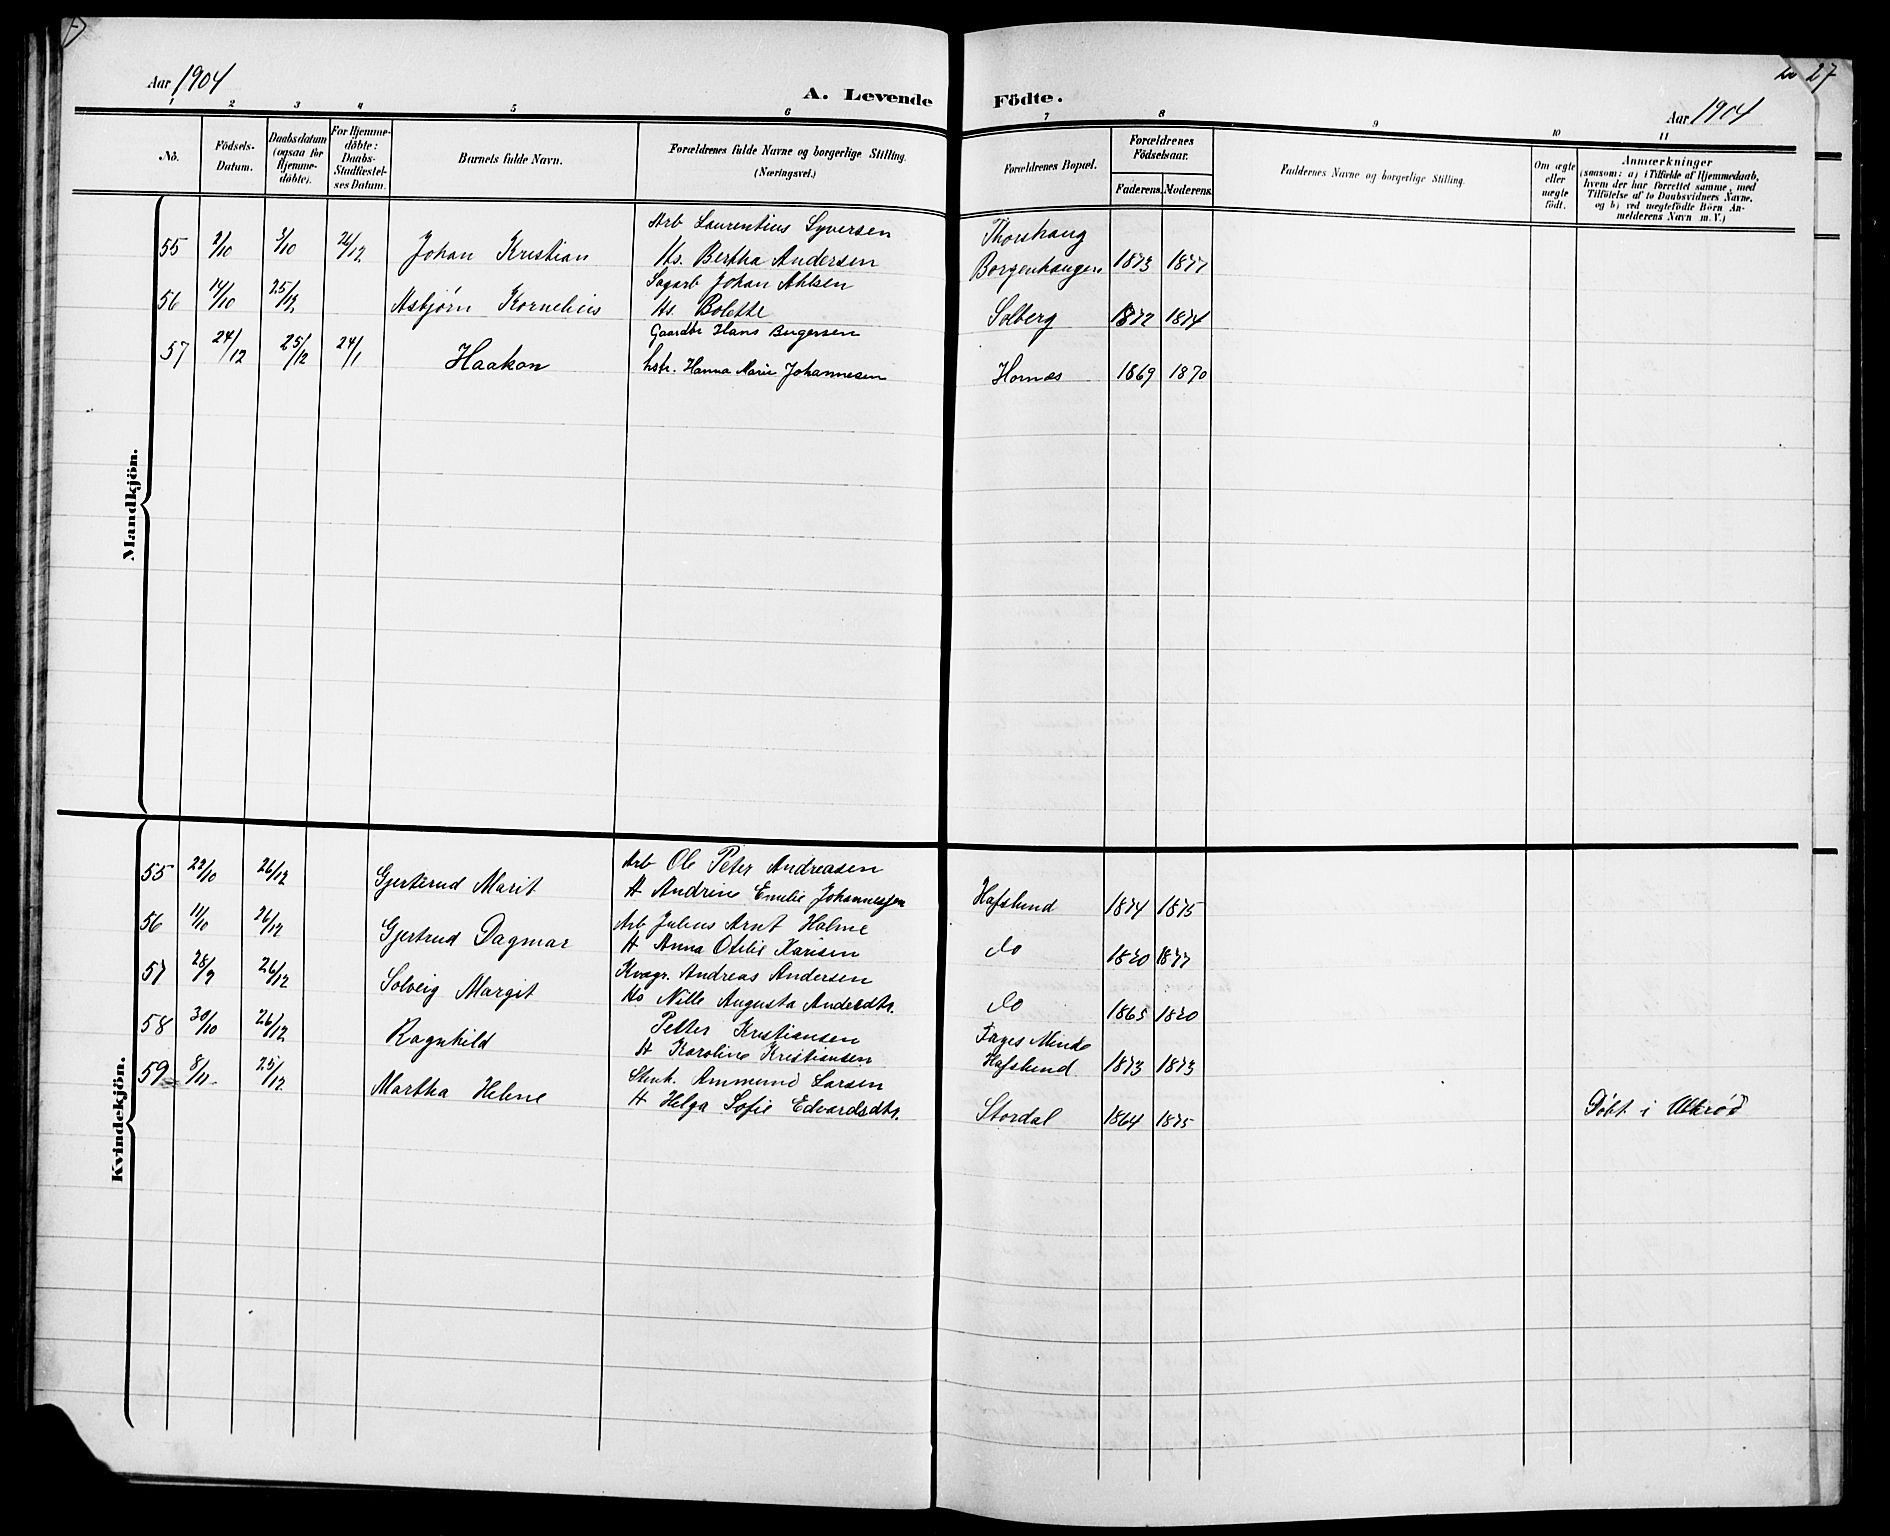 Aar 1904
A. Levende Födte.
27
Aar 1904
1 2 3 4 5 6 7 8 9 10 11
No.
Födsels-Datum.
Daabsdatum (ogsaa for Hjemme-döbte).
For Hjemme-döbte: Daabs-Stadfæstel-ses Datum.
Barnets fulde Navn.
Forældrenes fulde Navne og borgerlige Stilling. (Næringsvei.)
Forældrenes Bopæl.
Forældrenes Födselsaar.
Faderens. Moderens.
Faddernes Navne og borgerlige Stilling.
Om ægte eller uægte födt.
Anmærkninger
(saasom: a) i Tilfælde af Hjemmedaab, hvem der har forrettet samme, med Tilföielse af to Daabsvidners Navne, og b) ved uægtefödte Börn An-melderens Navn m. V.)
Mandkjön.
Arb Laurentius Syversen Thorshaug
55 2/10 3/10 26/12 Johan Kristian Hs. Bertha Andersen Borgenhaugen 1873 1877
Sagarb Johan Ahlsen
56 14/10 25/12 Asbjørn Kornelius Hs. Bolette Solberg 1872 1874
Gaardbr Hans Bugersen
57 24/12 25/12 24/1 Haakon hstr. Hanna Marie Johannesen Hornæs 1869 1870
Kvindekjön.
Arb Ole Peter Andreasen
55 29/10 26/12 Gjertrud Marit H Andrine Emelie Johannessen Hafslund 1874 1875
Arb Julius Arnt Holme
56 11/10 26/12 Gjertrud Dagmar H Anna Otelie Karisen do 1880 1877
Andreas Andersen
57 28/9 26/12 Solveig Margit Hs Nille Augusta Andersdtr. do 1865 1880
Petter Kristiansen Fages Minde
58 30/10 26/12 Ragnhild H Karoline Kristiansen Hafslund 1873 1873
Stenh. Ammund Larsen
59 8/11 25/12 Martha Helene H Helga Sofie Edvardsdtr. Stordal 1864 1875 Döbt i Ulkrød